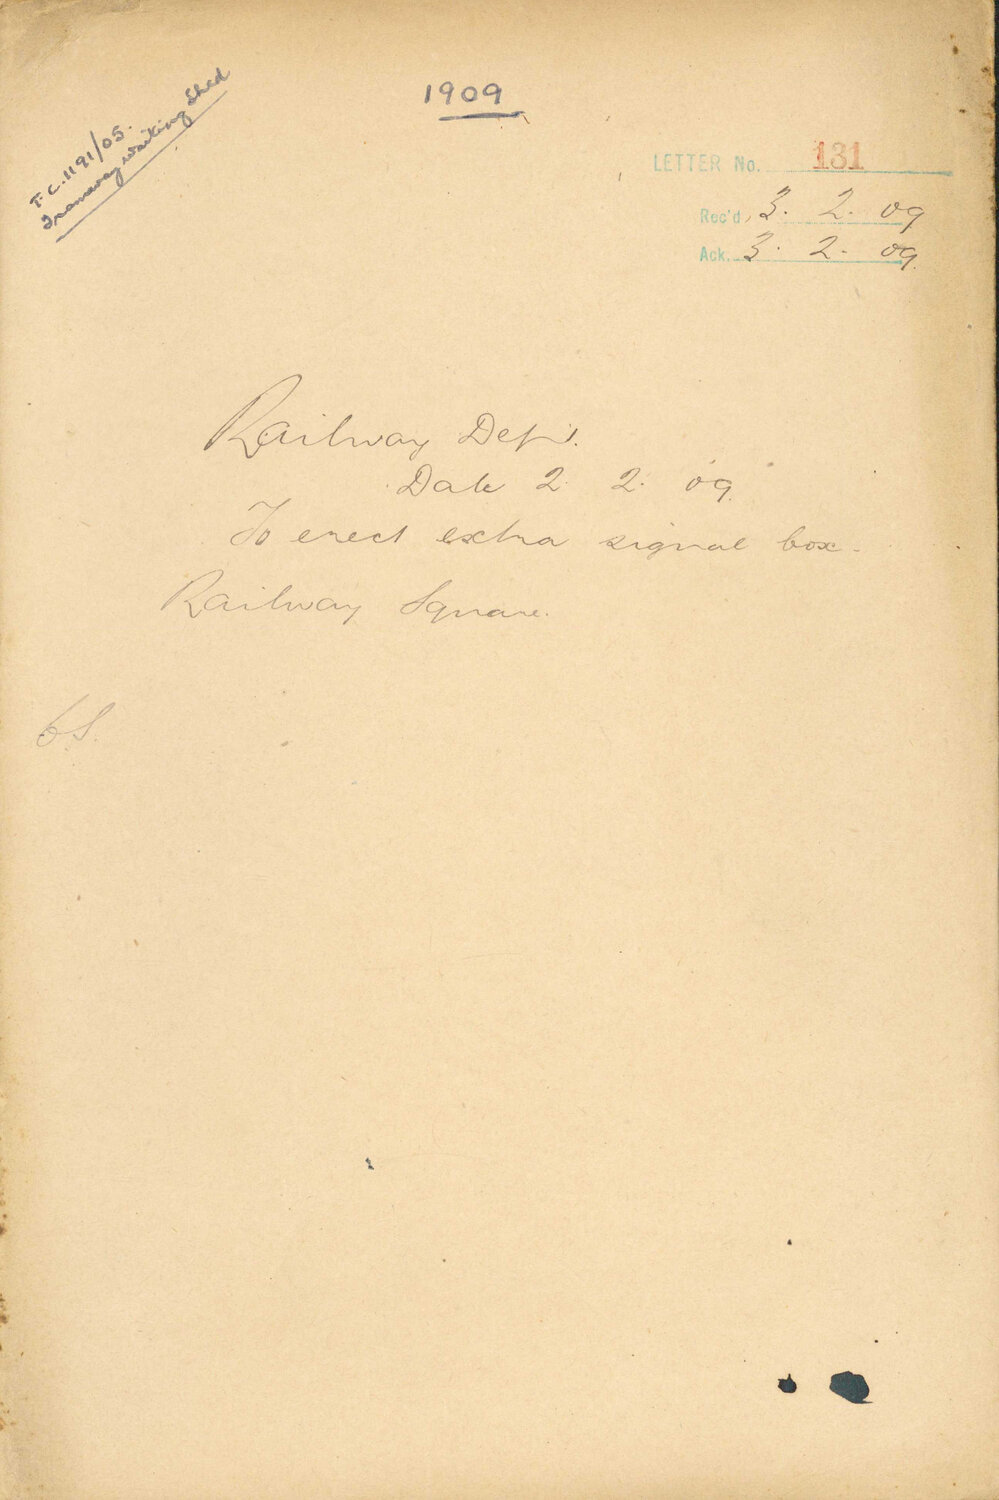 1909
T.C. 1191/05.
Tramway Waiting Shed
LETTER No. 131
Rec'd. 3. 2. 09
Ack. 3. 2. 09.
Railway Dept.
Date 2. 2. 09.
To erect extra signal box.
Railway Square.